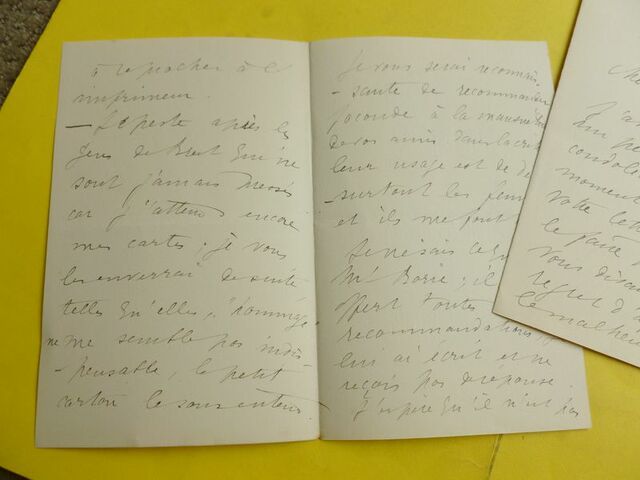 à reprocher à l'
imprimeur.
— Je peste après les
gens de Brest qui ne
sont jamais pressés
car j'attends encore
mes cartes ; je vous
les enverrai de suite
telles qu'elles, "hommage"
ne me semble pas indis
- pensable, le petit
carton le sous entend.
Je vous serai reconnais.
- sante de recommander
Joconde à la
de vos amis dans la
leur usage est de
- surtout les
et ils me font
Je ne sais ce
Mr Borie ; il
offert toutes
recommandations
lui ai écrit et ne
reçois pas de réponse.
J'espère qu'il n'est pas
J'a
Un pe
condolé
moment
votre let
le faire
vous disa
regret d'a
le malheur